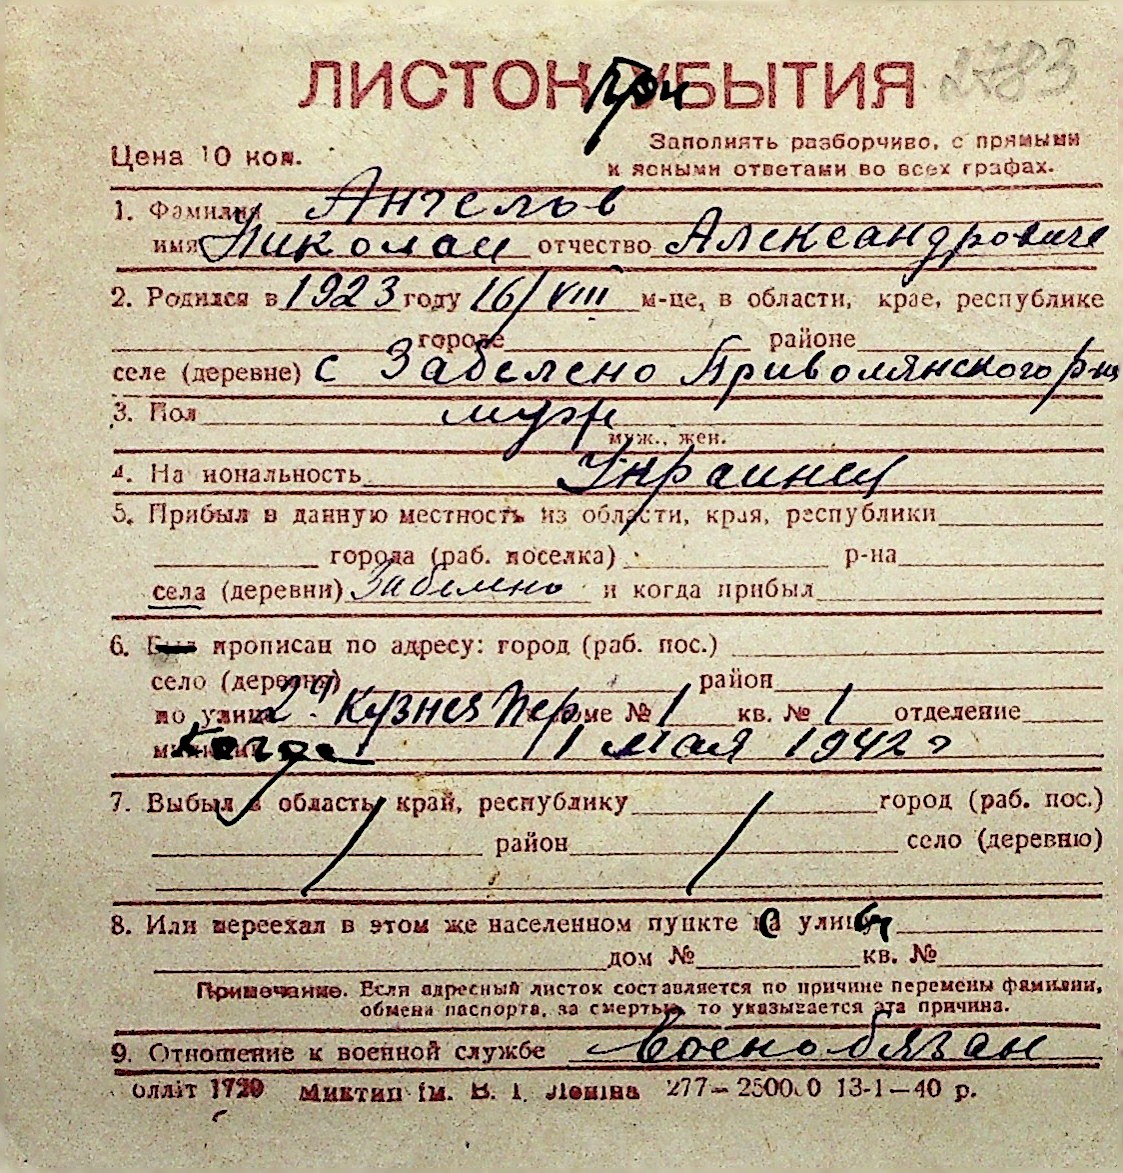 ЛИСТОК УБЫТИЯ 2783
Цена 10 коп. Заполнять разборчиво, с прямыми
и ясными ответами во всех графах.
1. Фамилия Ангелов
имя Николай отчество Александрович
2. Родился в 1923 году 16/VIII м-це, в области, крае, республике
городе районе
селе (деревне) с Забелено Приволянского р-на
3. Пол муж
муж., жен.
4. Национальность Украинец
5. Прибыл в данную местность из области, края, республики
города (раб. поселка) р-на
села (деревни) Забелено и когда прибыл
6. Был прописан по адресу: город (раб. пос.)
село (деревня) район
по улице 2й Кузнеч Пер доме № 1 кв. № 1 отделение
Когда 11 мая 1942 г
7. Выбыл в область, край, республику город (раб. пос.)
район село (деревню)
8. Или переехал в этом же населенном пункте на улицу
дом № кв. №
Примечание. Если адресный листок составляется по причине перемены фамилии,
обмена паспорта, за смертью, то указывается эта причина.
9. Отношение к военной службе Военнобязан
оллит 1720 Миктип ім. В. І. Леніна 277—250000 13-1—40 р.